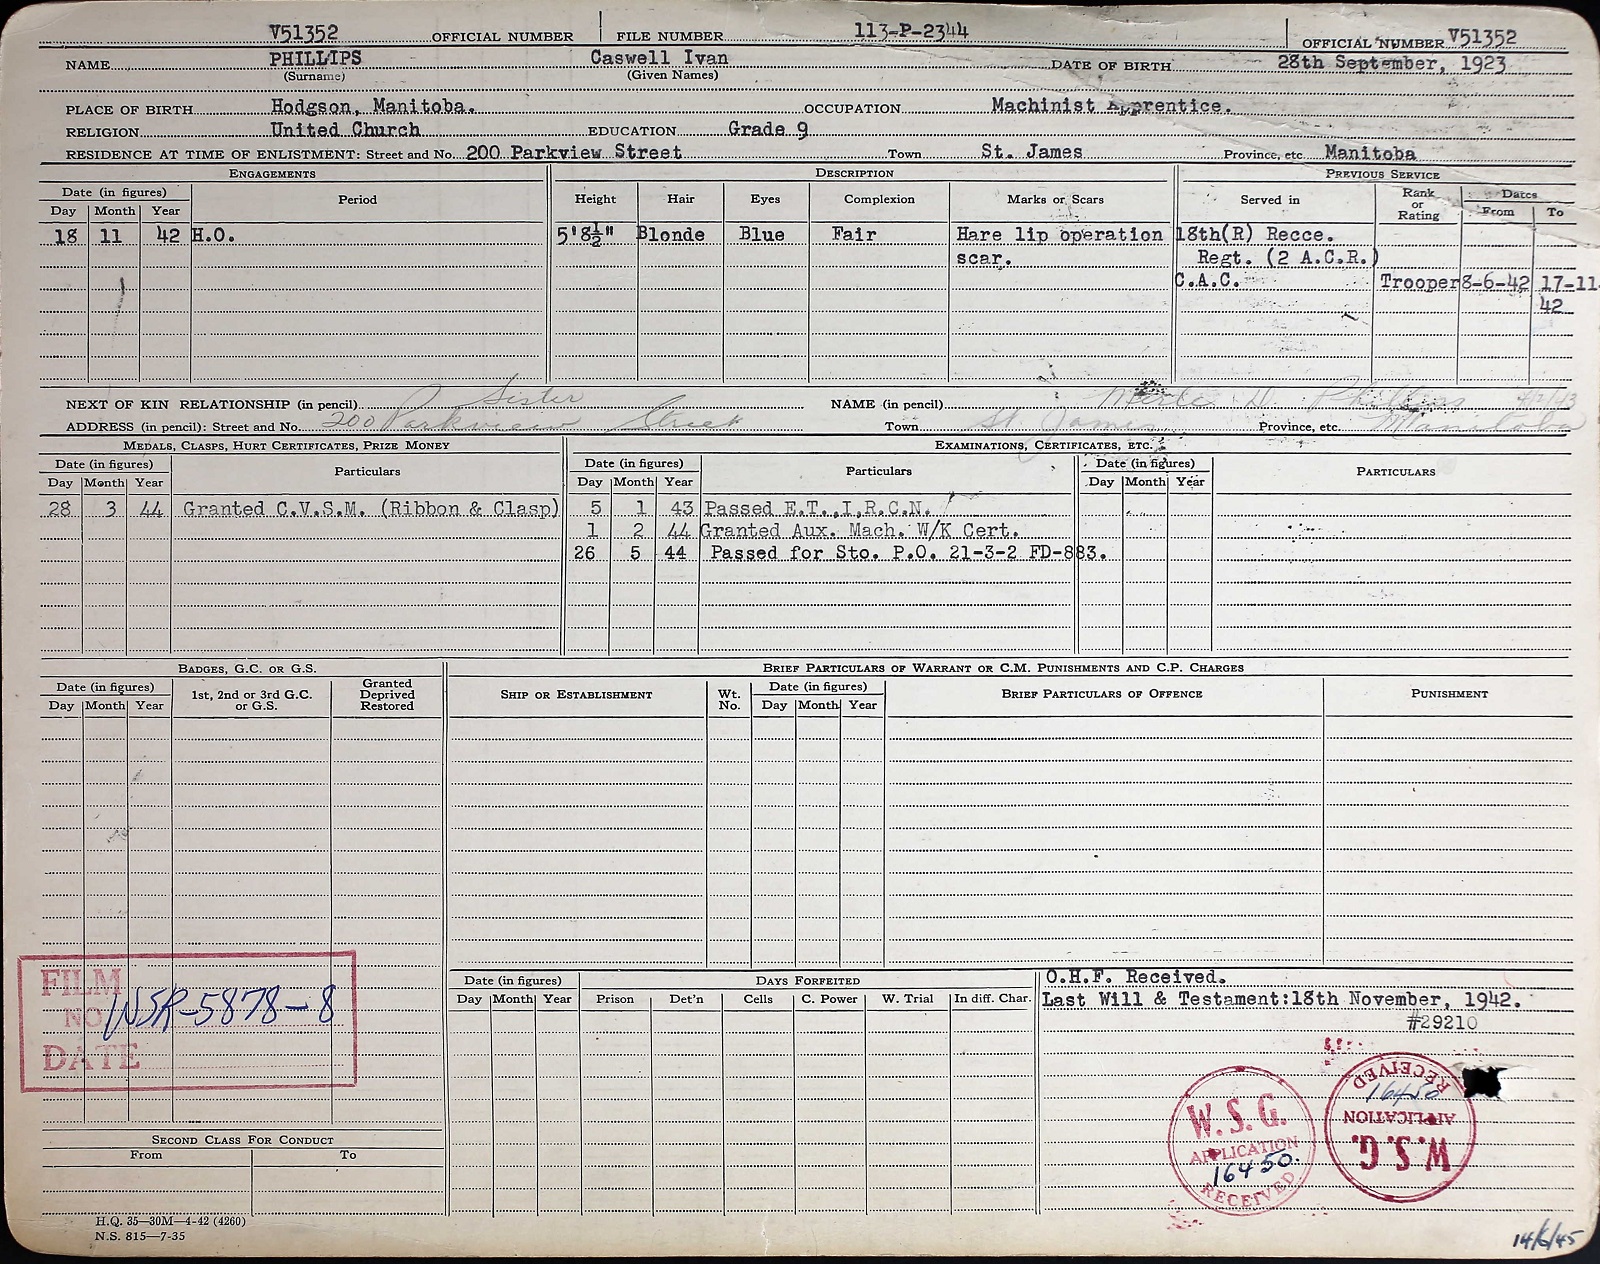 V51352 OFFICIAL NUMBER FILE NUMBER 113-P-2344 OFFICIAL NUMBER V51352
NAME PHILLIPS Caswell Ivan DATE OF BIRTH 28th September, 1923
(Surname) (Given Names)
PLACE OF BIRTH Hodgson, Manitoba. OCCUPATION Machinist Apprentice.
RELIGION United Church EDUCATION Grade 9
RESIDENCE AT TIME OF ENLISTMENT: Street and No. 200 Parkview Street Town St. James Province, etc. Manitoba
ENGAGEMENTS DESCRIPTION PREVIOUS SERVICE
Date (in figures) Period Height Hair Eyes Complexion Marks or Scars Served in Rank or Rating Dates
Day Month Year From To
18 11 42 H.O. 5'8½" Blonde Blue Fair Hare lip operation 18th(R) Recce.
scar. Regt. (2 A.C.R.)
C.A.C. Trooper 8-6-42 17-11-
42
NEXT OF KIN RELATIONSHIP (in pencil) Sister NAME (in pencil) Merle D. Phillips
ADDRESS (in pencil): Street and No. 200 Parkview Street Town St. James Province, etc. Manitoba
MEDALS, CLASPS, HURT CERTIFICATES, PRIZE MONEY EXAMINATIONS, CERTIFICATES, ETC.
Date (in figures) Particulars Date (in figures) Particulars Date (in figures) PARTICULARS
Day Month Year Day Month Year Day Month Year
28 3 44 Granted C.V.S.M. (Ribbon & Clasp) 5 1 43 Passed E.T.,I,R.C.N.
1 2 44 Granted Aux. Mach. W/K Cert.
26 5 44 Passed for Sto. P.O. 21-3-2 FD-883.
BADGES, G.C. OR G.S. BRIEF PARTICULARS OF WARRANT OR C.M. PUNISHMENTS AND C.P. CHARGES
Date (in figures) 1st, 2nd or 3rd G.C. or G.S. Granted Deprived Restored SHIP OR ESTABLISHMENT Wt. No. Date (in figures) BRIEF PARTICULARS OF OFFENCE PUNISHMENT
Day Month Year Day Month Year
FILM
NO WSR-5878-8
DATE
Date (in figures) DAYS FORFEITED O.H.F. Received.
Day Month Year Prison Det'n Cells C. Power W. Trial In diff. Char. Last Will & Testament:18th November, 1942.
#29210
W.S.G.
APPLICATION
16450.
RECEIVED
W.S.G.
APPLICATION
16450
RECEIVED
SECOND CLASS FOR CONDUCT
From To
H.Q. 35—30M—4-42 (4260)
N.S. 815—7-35
14/6/45